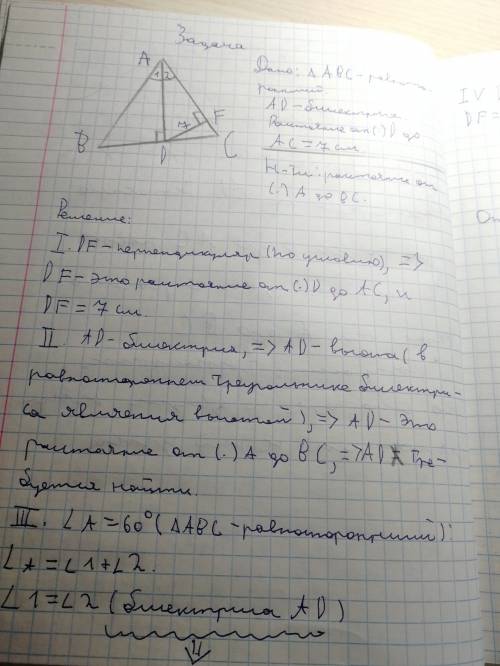 Задача
A
1 2
B
D
7
F
C
Дано: △ABC - равносто-
ронний
AD - биссектриса
Расстояние от (.) D до
AC = 7 см
Н-ти: расстояние от
(.) A до BC.
IV
DF =
Решение:
I. DF - перпендикуляр (по условию), =>
DF - это расстояние от (.) D до AC, и
DF = 7 см.
II. AD - биссектриса, => AD - высота (в
равностороннем треугольнике биссектри-
са является высотой), => AD - это
расстояние от (.) A до BC, => AD тре-
буется найти.
III. ∠A = 60° (△ABC - равносторонний):
∠A = ∠1 + ∠2.
∠1 = ∠2 (биссектриса AD)